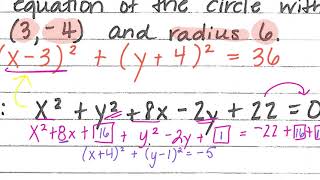 equation of the circle with
(3, -4) and radius 6.
(x-3)² + (y+4)² = 36
: x² + y² + 8x - 2y + 22 = 0
x² + 8x + 16 + y² - 2y + 1 = -22 + 16 + 1
(x+4)² + (y-1)² = -5